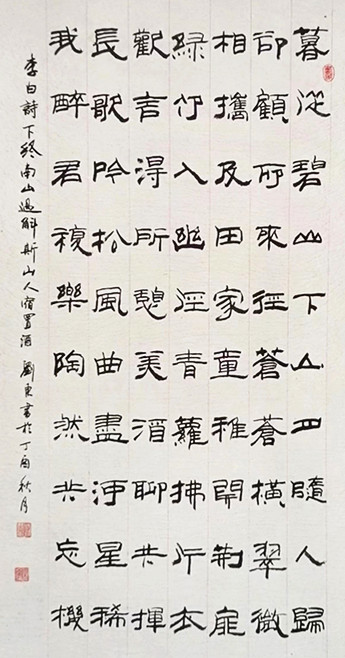 暮從碧山下山月隨人歸
卻顧所來徑蒼蒼橫翠微
相攜及田家童稚開荊扉
綠竹入幽徑青蘿拂行衣
歡言得所憩美酒聊共揮
長歌吟松風曲盡河星稀
我醉君復樂陶然共忘機
李白詩下終南山過斛斯山人宿置酒 劉東書於丁酉秋月